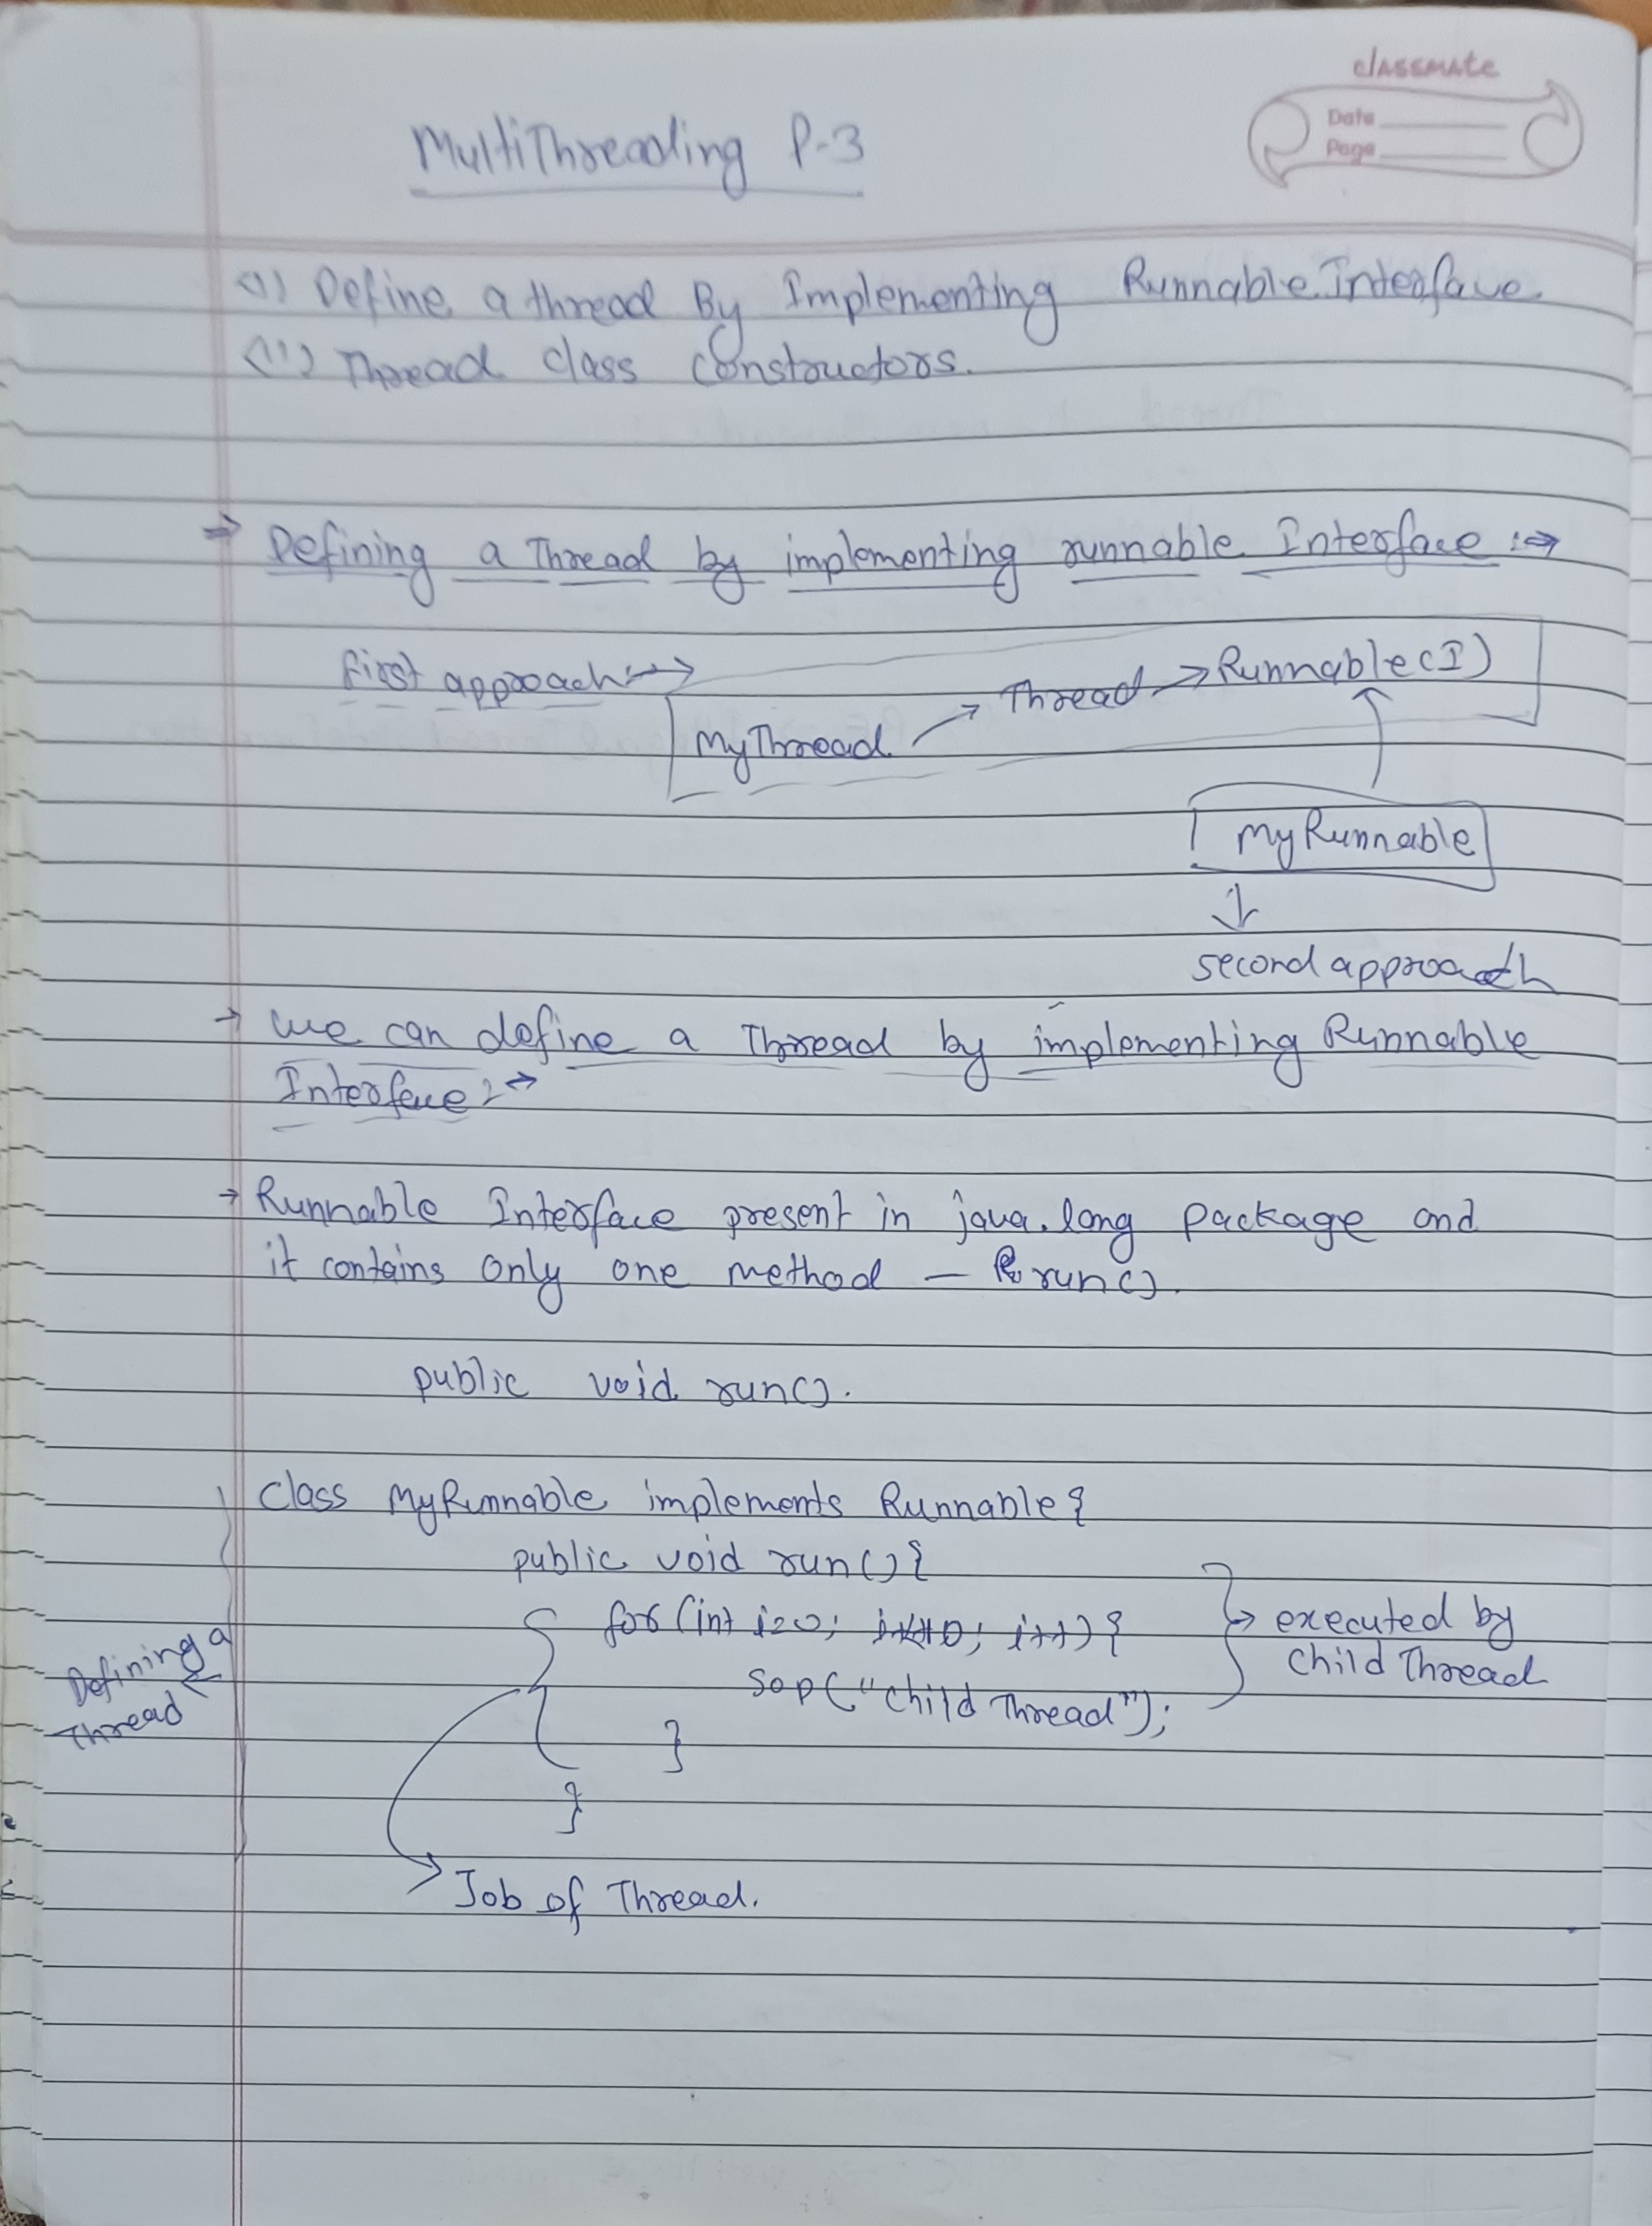 classmate
Date
Page
MultiThreading P-3
(i) Define a thread By Implementing Runnable Interface.
(ii) Thread class Constructors.
⇒ Defining a Thread by implementing runnable Interface :⇒
first approach :→
MyThread → Thread → Runnable (I)
MyRunnable
↓
second approach
→ we can define a Thread by implementing Runnable
Interface :→
→ Runnable Interface present in java.lang package and
it contains only one method — run().
public void run().
class MyRunnable implements Runnable {
public void run() {
for (int i=0; i<10; i++) {
sop("child Thread");
}
}
executed by
Child Thread
Defining a
Thread
Job of Thread.